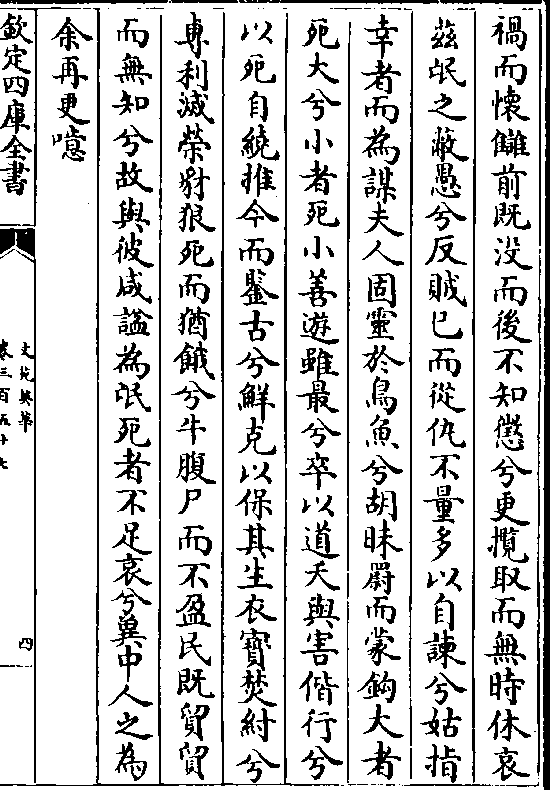 禍而懷讎前既没而後不知懲兮更攬取而無時休哀
茲氓之蔽愚兮反賊已而從仇不量多以自諫兮姑指
幸者而為謀夫人固靈於鳥魚兮胡昧罻而蒙鈎大者
死大兮小者死小善遊雖最兮卒以道夭與害偕行兮
以死自繞推今而鑒古兮鮮克以保其生衣寳焚紂兮
專利滅榮豺狼死而猶餓兮牛腹尸而不盈民既貿貿
而無知兮故與彼咸謚為氓死者不足哀兮冀中人之為
余再更噫
欽定四庫全書
文苑英華
卷三百五十七
四